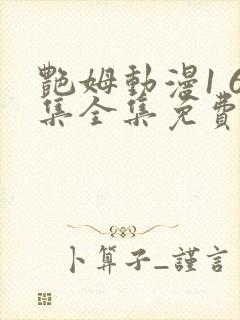 艷姆動漫16
集全集免費
卜算子_謹言